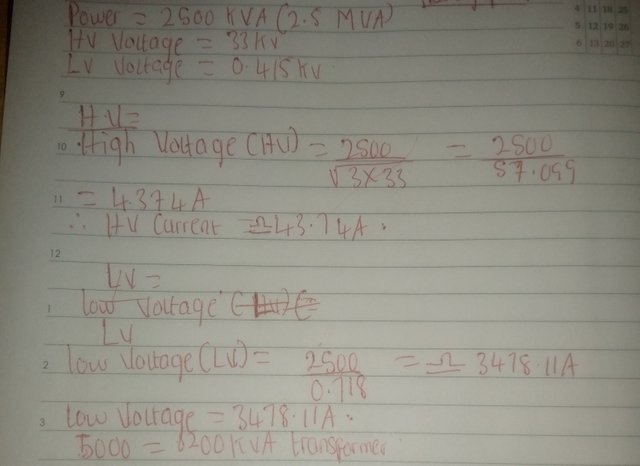 Power = 2500 KVA (2.5 MVA)
HV Voltage = 33KV
LV Voltage = 0.415KV.
4 11 18 25
5 12 19 26
6 13 20 27
9
HV =
10 High Voltage (HV) = 2500 / √3×33 = 2500 / 57.099
11 = 4.374A
∴ HV Current = Ω 43.74A.
12
LV =
1 low Voltage
LV
2 low Voltage (LV) = 2500 / 0.718 = Ω 3478.11A
3 Low Voltage = 3478.11A.
5000 = 6200KVA transformer.